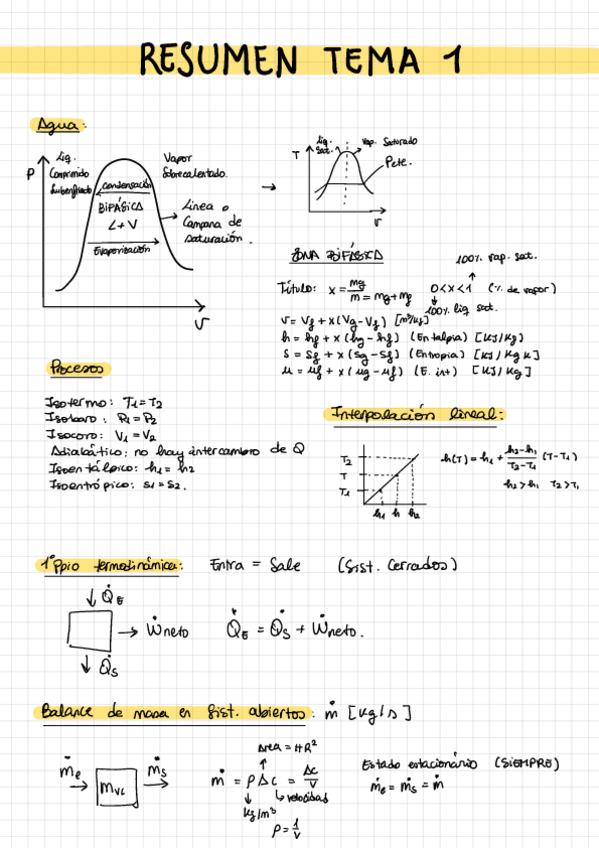 RESUMEN TEMA 1
Agua:
P
Liq.
Comprimido
Subenfriado
Vapor
Sobrecalentado.
condensación
BIFÁSICA
L+V
Evaporización
Linea o
Campana de
saturación.
v
T
Liq.
Sat.
Vap. Saturado
P cte.
v
ZONA BIFÁSICA
100% vap. sat.
Título: x = mg / m = mg + mf
0 < x < 1 (% de vapor)
100% liq sat.
v = vf + x(vg - vf) [m³/kg]
h = hf + x(hg - hf) (Entalpia) [kJ/kg]
s = sf + x(sg - sf) (Entropia) [kJ/kg K]
u = uf + x(ug - uf) (E. int) [kJ/kg]
Procesos
Isotermo: T1 = T2
Isobaro: P1 = P2
Isocoro: V1 = V2
Adiabático: no hay intercambio de Q
Isoentálpico: h1 = h2
Isoentrópico: s1 = s2.
Interpolación lineal:
T2
T
T1
h1 h h2
h(T) = h1 + (h2 - h1)/(T2 - T1) (T - T1)
h2 > h1 T2 > T1
1º Ppio termodinámica: Entra = Sale (Sist. Cerrados)
Q̇E
Ẇneto
Q̇S
Q̇E = Q̇S + Ẇneto.
Balance de masa en Sist. abiertos: ṁ [kg/s]
ṁe
mvc
ṁs
Area = πR²
ṁ = ρAc = Ac/v
velocidad
kg/m³
ρ = 1/v
Estado estacionário (SIEMPRE)
ṁe = ṁs = ṁ